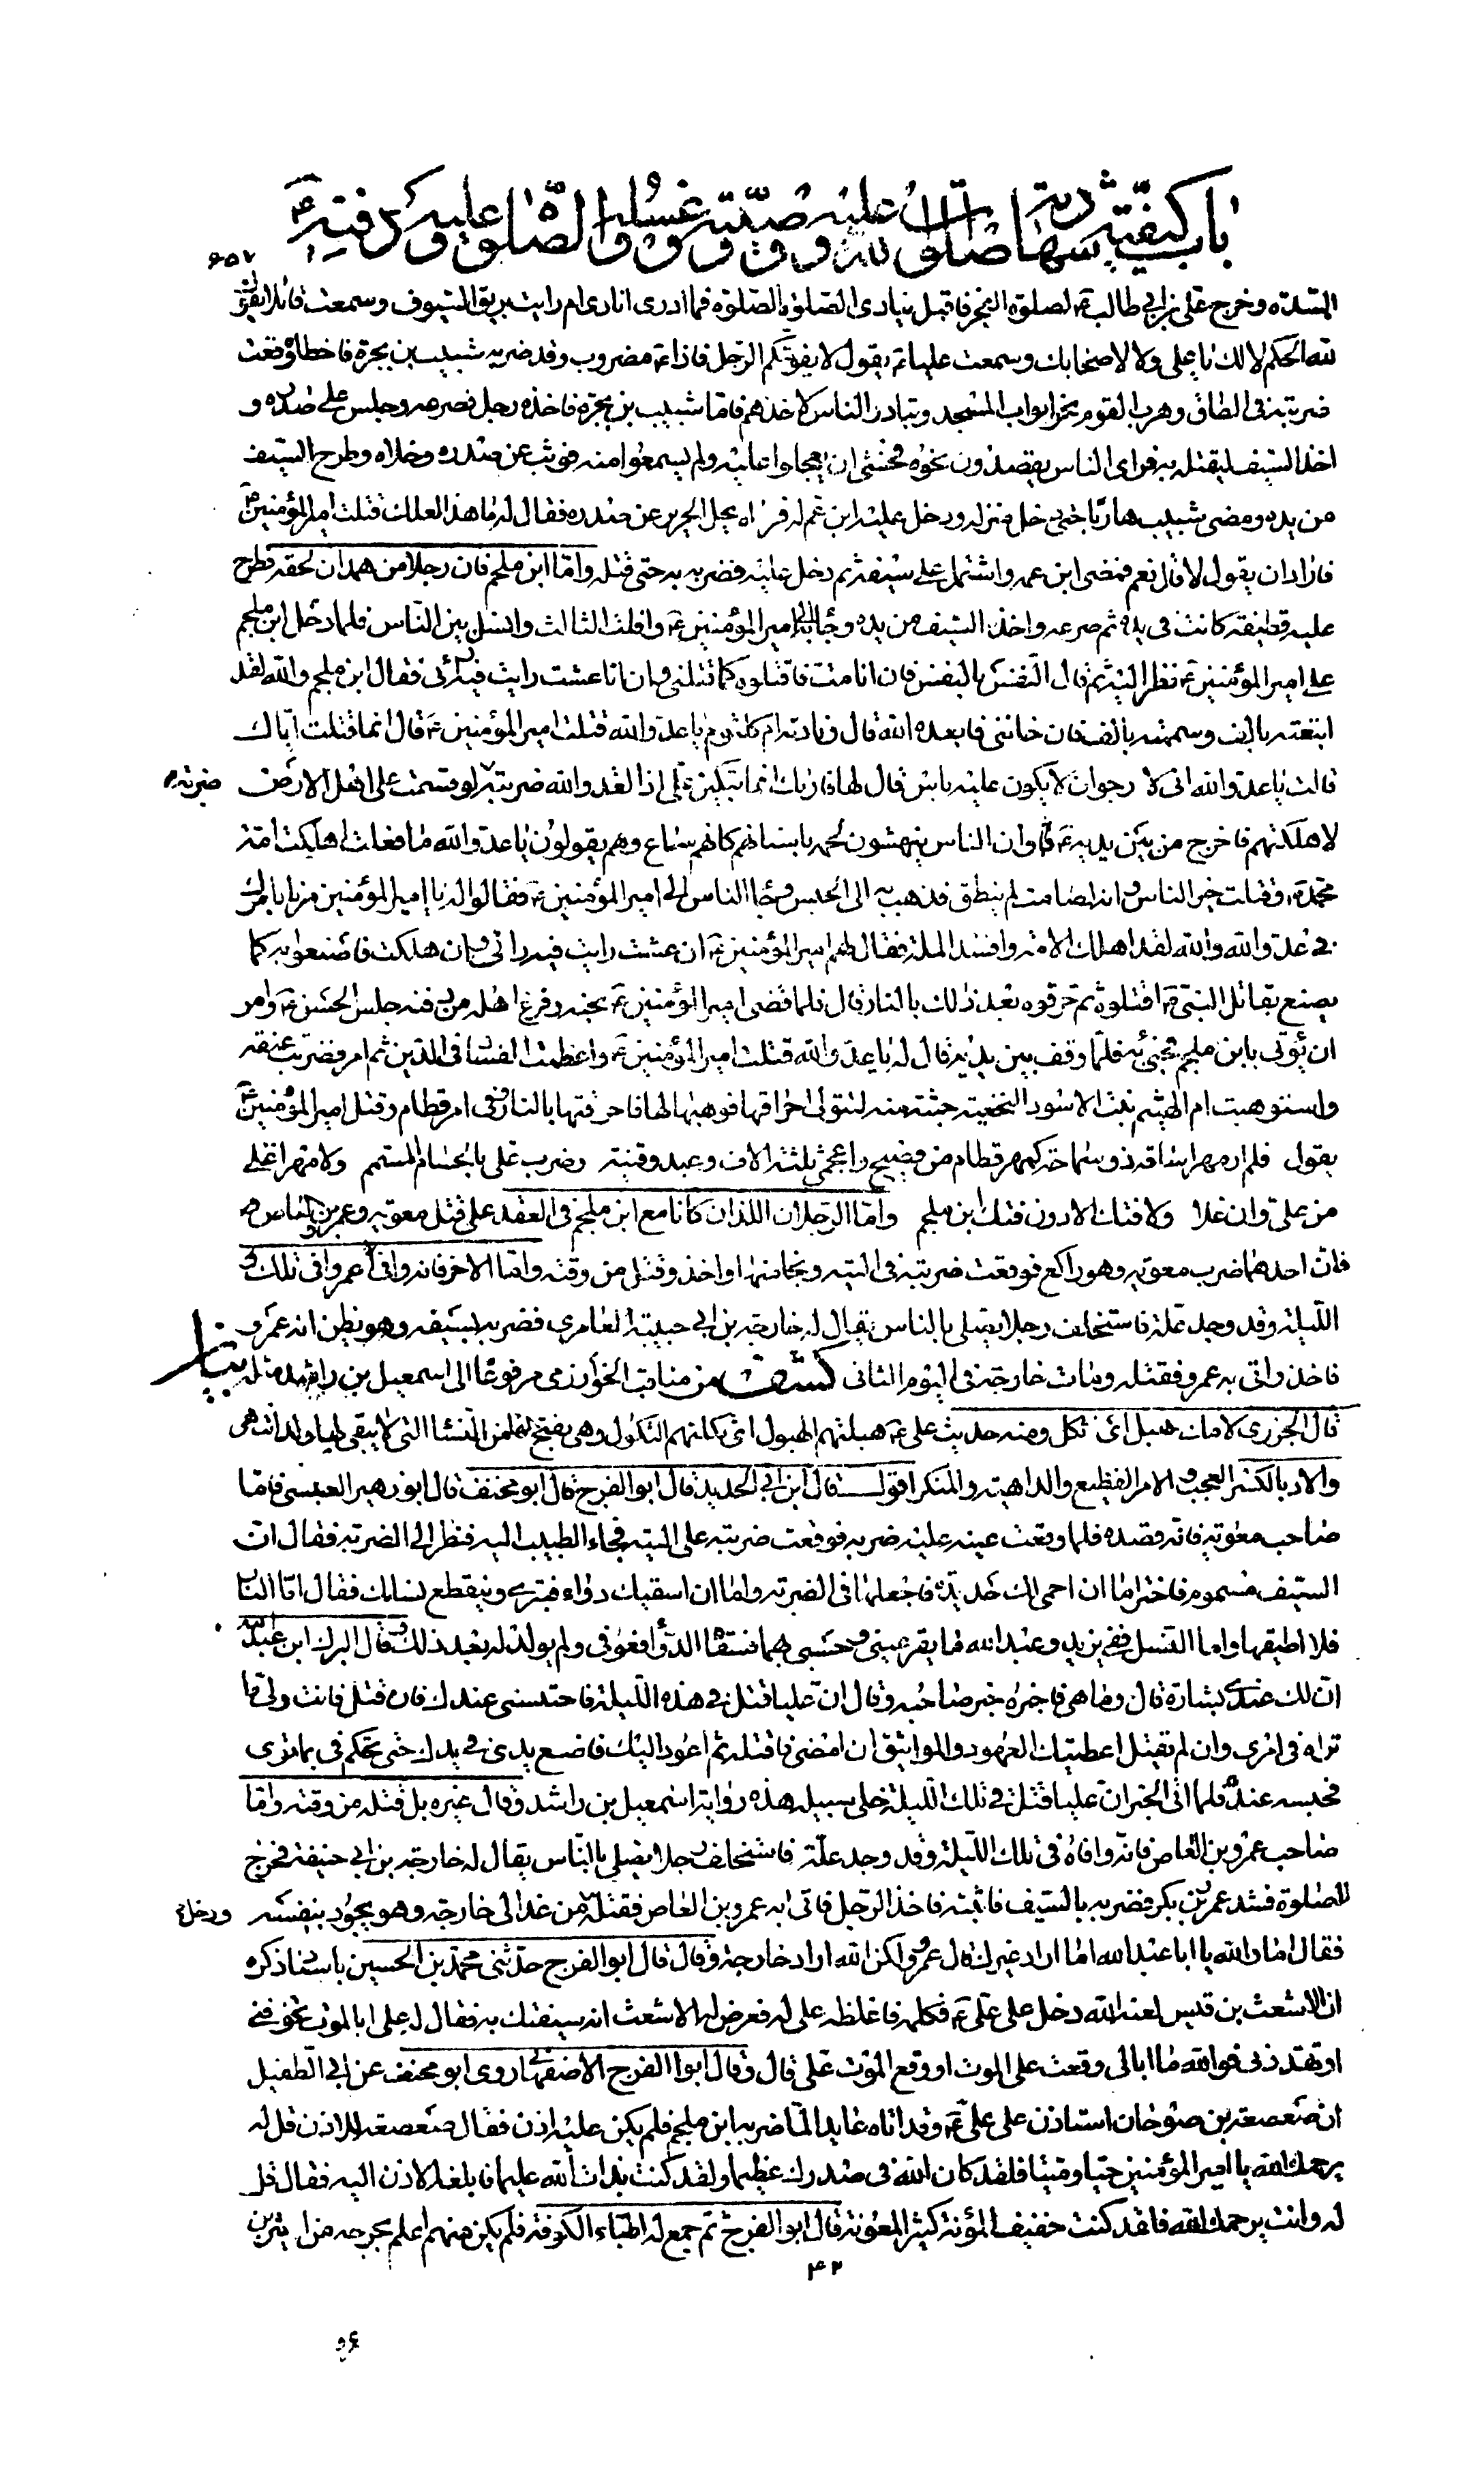 باب كيفية شهادته صلوات الله عليه و وصيته و غسله والصلوة عليه و دفنه
٦٥٧
السدة و خرج على بن ابي طالب ع لصلوة الفجر فاقبل ينادى الصلوة الصلوة فما ادرى انادى ام رايت بريق السيوف و سمعت قائلا يقول
لله الحكم لا لك يا على ولا لاصحابك و سمعت عليا ع يقول لا يفوتنكم الرجل فاذا ع مضروب و قد ضربه شبيب بن بجرة فاخطاه و وقعت
ضربته فى الطاق و هرب القوم نحو ابواب المسجد و تبادر الناس لاخذهم فاما شبيب بن بجرة فاخذه رجل فصرعه و جلس على صدره و
اخذ السيف ليقتله به فراى الناس يقصدون نحوه فخشى ان يعجلوا عليه و لم يسمعوا منه فوثب عن صدره و خلاه و طرح السيف
من يده و مضى شبيب هاربا حتى دخل منزله و دخل عليه ابن عم له فراه يحل الحرير عن صدره فقال له ما هذا لعلك قتلت امير المؤمنين ع
فاراد ان يقول لا قال نعم فمضى ابن عمه و اشتمل على سيفه ثم دخل عليه فضربه به حتى قتله و اما ابن ملجم فان رجلا من همدان لحقه فطرح
عليه قطيفة كانت فى يده ثم صرعه و اخذ السيف من يده و جاء به الى امير المؤمنين ع و افلت الثالث و انسل بين الناس فلما دخل ابن ملجم
على امير المؤمنين ع نظر اليه ثم قال النفس بالنفس فان انا مت فاقتلوه كما قتلنى و ان انا عشت رايت فيه رئى فقال ابن ملجم والله لقد
ابتعته بالف و سممته بالف فان خاننى فابعده الله قال و نادته ام كلثوم يا عدو الله قتلت امير المؤمنين ع قال انما قتلت اباك
قالت يا عدو الله انى لارجو ان لا يكون عليه باس قال لها فاراك انما تبكين على اذا لقد والله ضربته ضربة لو قسمت على اهل الارض
لاهلكتهم فاخرج من بين يديه ع و ان الناس ينهشون لحمه باسنانهم كانهم سباع و هم يقولون يا عدو الله ما فعلت اهلكت امة
محمد و قتلت خير الناس و انه لصامت لم ينطق فذهب به الى الحبس و جاء الناس الى امير المؤمنين ع فقالوا له يا امير المؤمنين مرنا بامرك
فى عدو الله والله لقد اهلك الامة و افسد الملة فقال لهم امير المؤمنين ع ان عشت رايت فيه رائى و ان هلكت فاصنعوا به كما
يصنع بقاتل النبى اقتلوه ثم حرقوه بعد ذلك بالنار قال فلما قضى امير المؤمنين ع نحبه و فرغ اهله من دفنه جلس الحسن ع و امر
ان يؤتى بابن ملجم فجئ به فلما وقف بين يديه قال له يا عدو الله قتلت امير المؤمنين ع و اعظمت الفساد فى الدين ثم امر فضربت عنقه
و استوهبت ام الهيثم بنت الاسود النخعية جثته منه لتتولى احراقها فوهبها لها فاحرقتها بالنار و فى امر قطام و قتل امير المؤمنين ع
يقول فلم ار مهرا ساقه ذو سماحة كمهر قطام من فصيح و اعجم ثلثة الاف و عبد و قينة و ضرب على بالحسام المسمم ولا مهر اغلى
من على و ان غلا ولا فتك الا دون فتك ابن ملجم و اما الرجلان اللذان كانا مع ابن ملجم فى العقد على قتل معوية و عمرو بن العاص
فان احدهما ضرب معوية و هو راكع فوقعت ضربته فى اليته و نجا منها و اخذ و قتل من وقته و اما الاخر فانه وافى عمروا فى تلك
الليلة و قد وجد علة فاستخلف رجلا يصلى بالناس يقال له خارجة بن ابى حبيبة العامرى فضربه بسيفه و هو يظن انه عمرو
فاخذ و اتى به عمرو فقتله و مات خارجة فى اليوم الثانى كشف من مناقب الخوارزمى مرفوعا الى اسمعيل بن راشد مثله
بيان
قال الجزرى لامك هبل اى ثكل و منه حديث على ع هبلتهم الهبول اى ثكلتهم الثكول و هى بفتح الهاء من النساء التى لا يبقى لها ولد انتهى
والاد بالكسر العجب و الامر الفظيع والداهية والمنكر اقول قال ابن ابى الحديد قال ابو الفرج قال ابو مخنف قال ابو زهير العبسى فاما
صاحب معوية فانه قصده فلما وقعت عينه عليه ضربه فوقعت ضربته على اليته فجاء الطبيب اليه فنظر الى الضربة فقال ان
السيف مسموم فاختر اما ان احمى لك حديدة فاجعلها فى الضربة و اما ان اسقيك دواء فتبرء و ينقطع نسلك فقال اما النار
فلا اطيقها و اما النسل ففى يزيد و عبد الله ما يقر عينى و حسبى بهما فسقاه الدواء فعوفى و لم يولد له بعد ذلك و قال البرك ابن عبد الله
ان لك عندى بشارة قال و ما هى فاخبره خبر صاحبه و قال ان عليا قتل فى هذه الليلة فاحتبسنى عندك فان قتل فانت ولى ما
تراه فى امرى و ان لم يقتل اعطيتك العهود والمواثيق ان امضى فاقتله ثم اعود اليك فاضع يدى فى يدك حتى تحكم فى بما ترى
فحبسه عنده فلما اتى الخبر ان عليا قتل فى تلك الليلة خلى سبيله هذه رواية اسمعيل بن راشد و قال غيره بل قتله من وقته و اما
صاحب عمرو بن العاص فانه وافاه فى تلك الليلة و قد وجد علة فاستخلف رجلا يصلى بالناس يقال له خارجة بن ابى حنيفة فخرج
للصلوة فشد عمرو بن بكر فضربه بالسيف فاثبته فاخذ الرجل فاتى به عمرو بن العاص فقتله و دخل من غد الى خارجة و هو يجود بنفسه
فقال اما والله يا ابا عبد الله ما اراد غيرك قال عمرو ولكن الله اراد خارجة و قال قال ابو الفرج حدثنى محمد بن الحسين باسناد ذكره
ان الاشعث بن قيس لعنه الله دخل على على ع فكلمه فاغلظ على له فعرض له الاشعث انه سيفتك به فقال له على ابالموت تخوفنى
او تهددنى فوالله ما ابالى وقعت على الموت او وقع الموت على قال و قال ابو الفرج الاصفهانى روى ابو مخنف عن ابى الطفيل
ان صعصعة بن صوحان استاذن على على ع و قد اتاه عايدا لما ضربه ابن ملجم فلم يكن عليه اذن فقال صعصعة للاذن قل له
يرحمك الله يا امير المؤمنين حيا و ميتا فلقد كان الله فى صدرك عظيما و لقد كنت بذات الله عليما فابلغه الاذن اليه فقال قل
له و انت يرحمك الله فلقد كنت خفيف المؤنة كثير المعونة قال ابو الفرج ثم جمع له اطباء الكوفة فلم يكن منهم اعلم بجرحه من اثير بن
٤٢